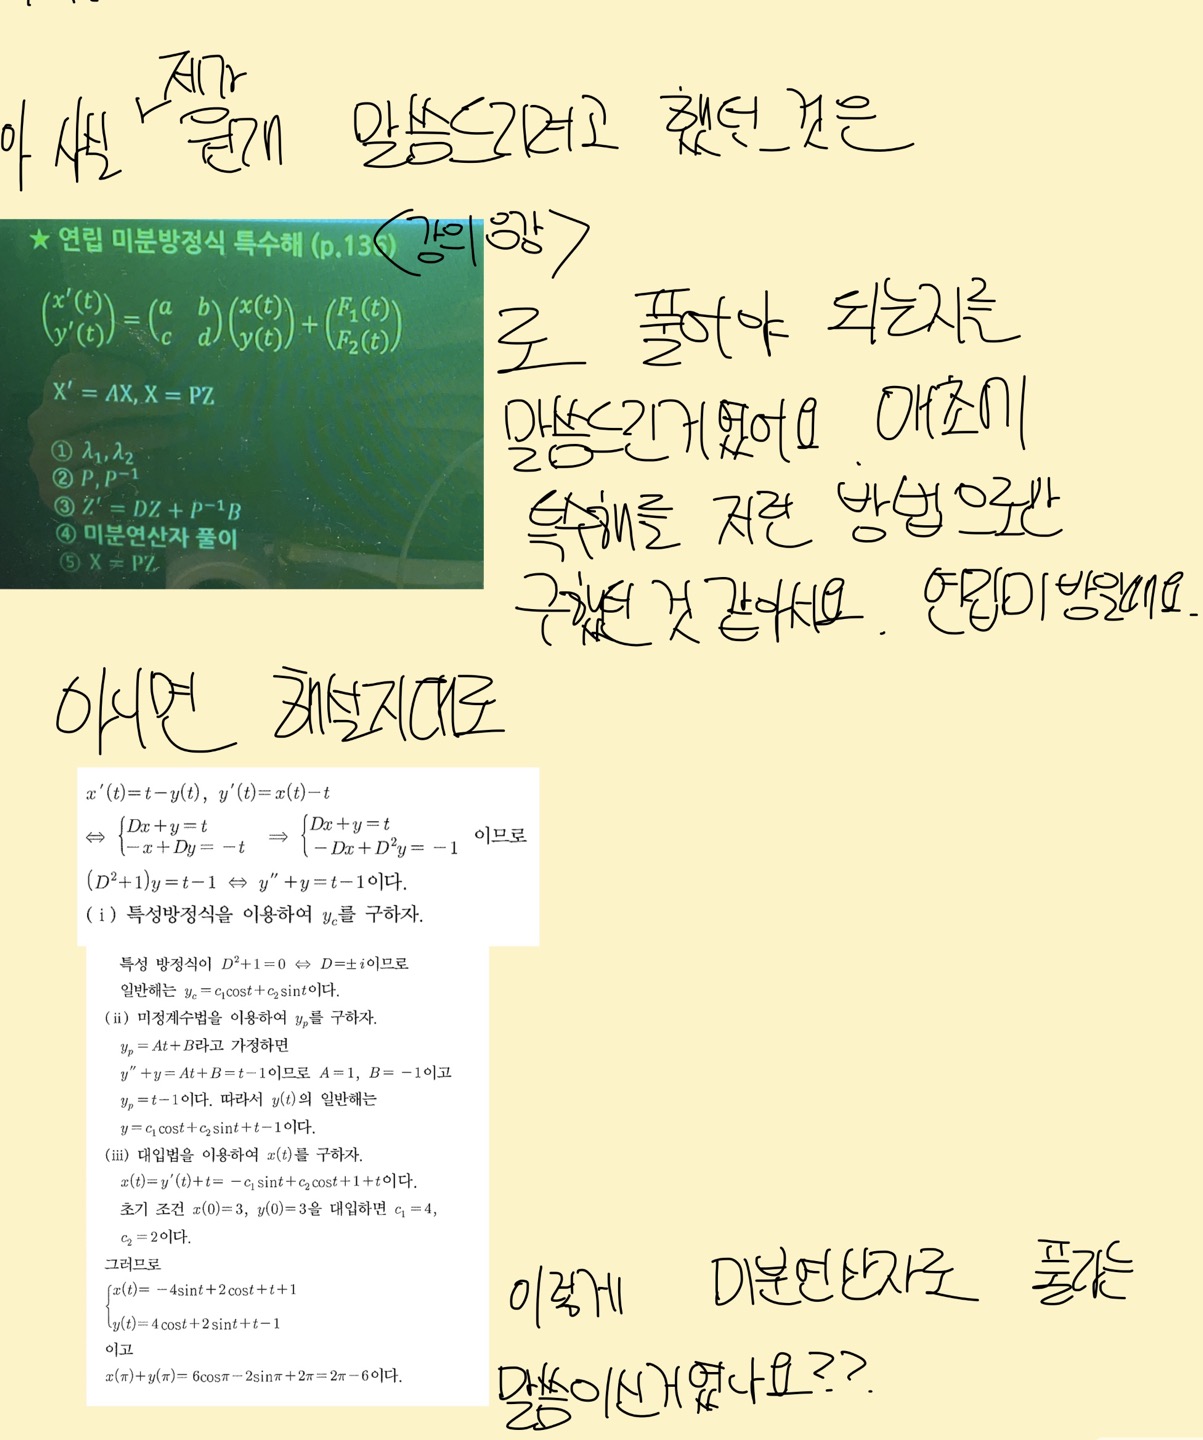 제가
아 사실 원래 말씀드리려고 했던 것은
★ 연립 미분방정식 특수해 (p.136)
<강의 음강>
(x'(t) y'(t)) = (a b c d)(x(t) y(t)) + (F₁(t) F₂(t))
X' = AX, X = PZ
① λ₁, λ₂
② P, P⁻¹
③ Z' = DZ + P⁻¹B
④ 미분연산자 풀이
⑤ X = PZ
로 풀어야 되는지를
말씀드린거였어요 애초에
특수해를 저런 방법으로만
구했던 것 같아서요. 연립미방일때요.
아니면 해설지대로
x'(t)=t−y(t), y'(t)=x(t)−t
⇔ {Dx+y=t −x+Dy=−t ⇒ {Dx+y=t −Dx+D²y=−1 이므로
(D²+1)y=t−1 ⇔ y''+y=t−1이다.
(i) 특성방정식을 이용하여 y_c를 구하자.
특성 방정식이 D²+1=0 ⇔ D=±i이므로
일반해는 y_c=c₁cost+c₂sint이다.
(ii) 미정계수법을 이용하여 y_p를 구하자.
y_p=At+B라고 가정하면
y''+y=At+B=t−1이므로 A=1, B=−1이고
y_p=t−1이다. 따라서 y(t)의 일반해는
y=c₁cost+c₂sint+t−1이다.
(iii) 대입법을 이용하여 x(t)를 구하자.
x(t)=y'(t)+t=−c₁sint+c₂cost+1+t이다.
초기 조건 x(0)=3, y(0)=3을 대입하면 c₁=4,
c₂=2이다.
그러므로
{x(t)=−4sint+2cost+t+1
y(t)=4cost+2sint+t−1
이고
x(π)+y(π)=6cosπ−2sinπ+2π=2π−6이다.
이렇게 미분연산자로 풀라는
말씀이신거였나요??